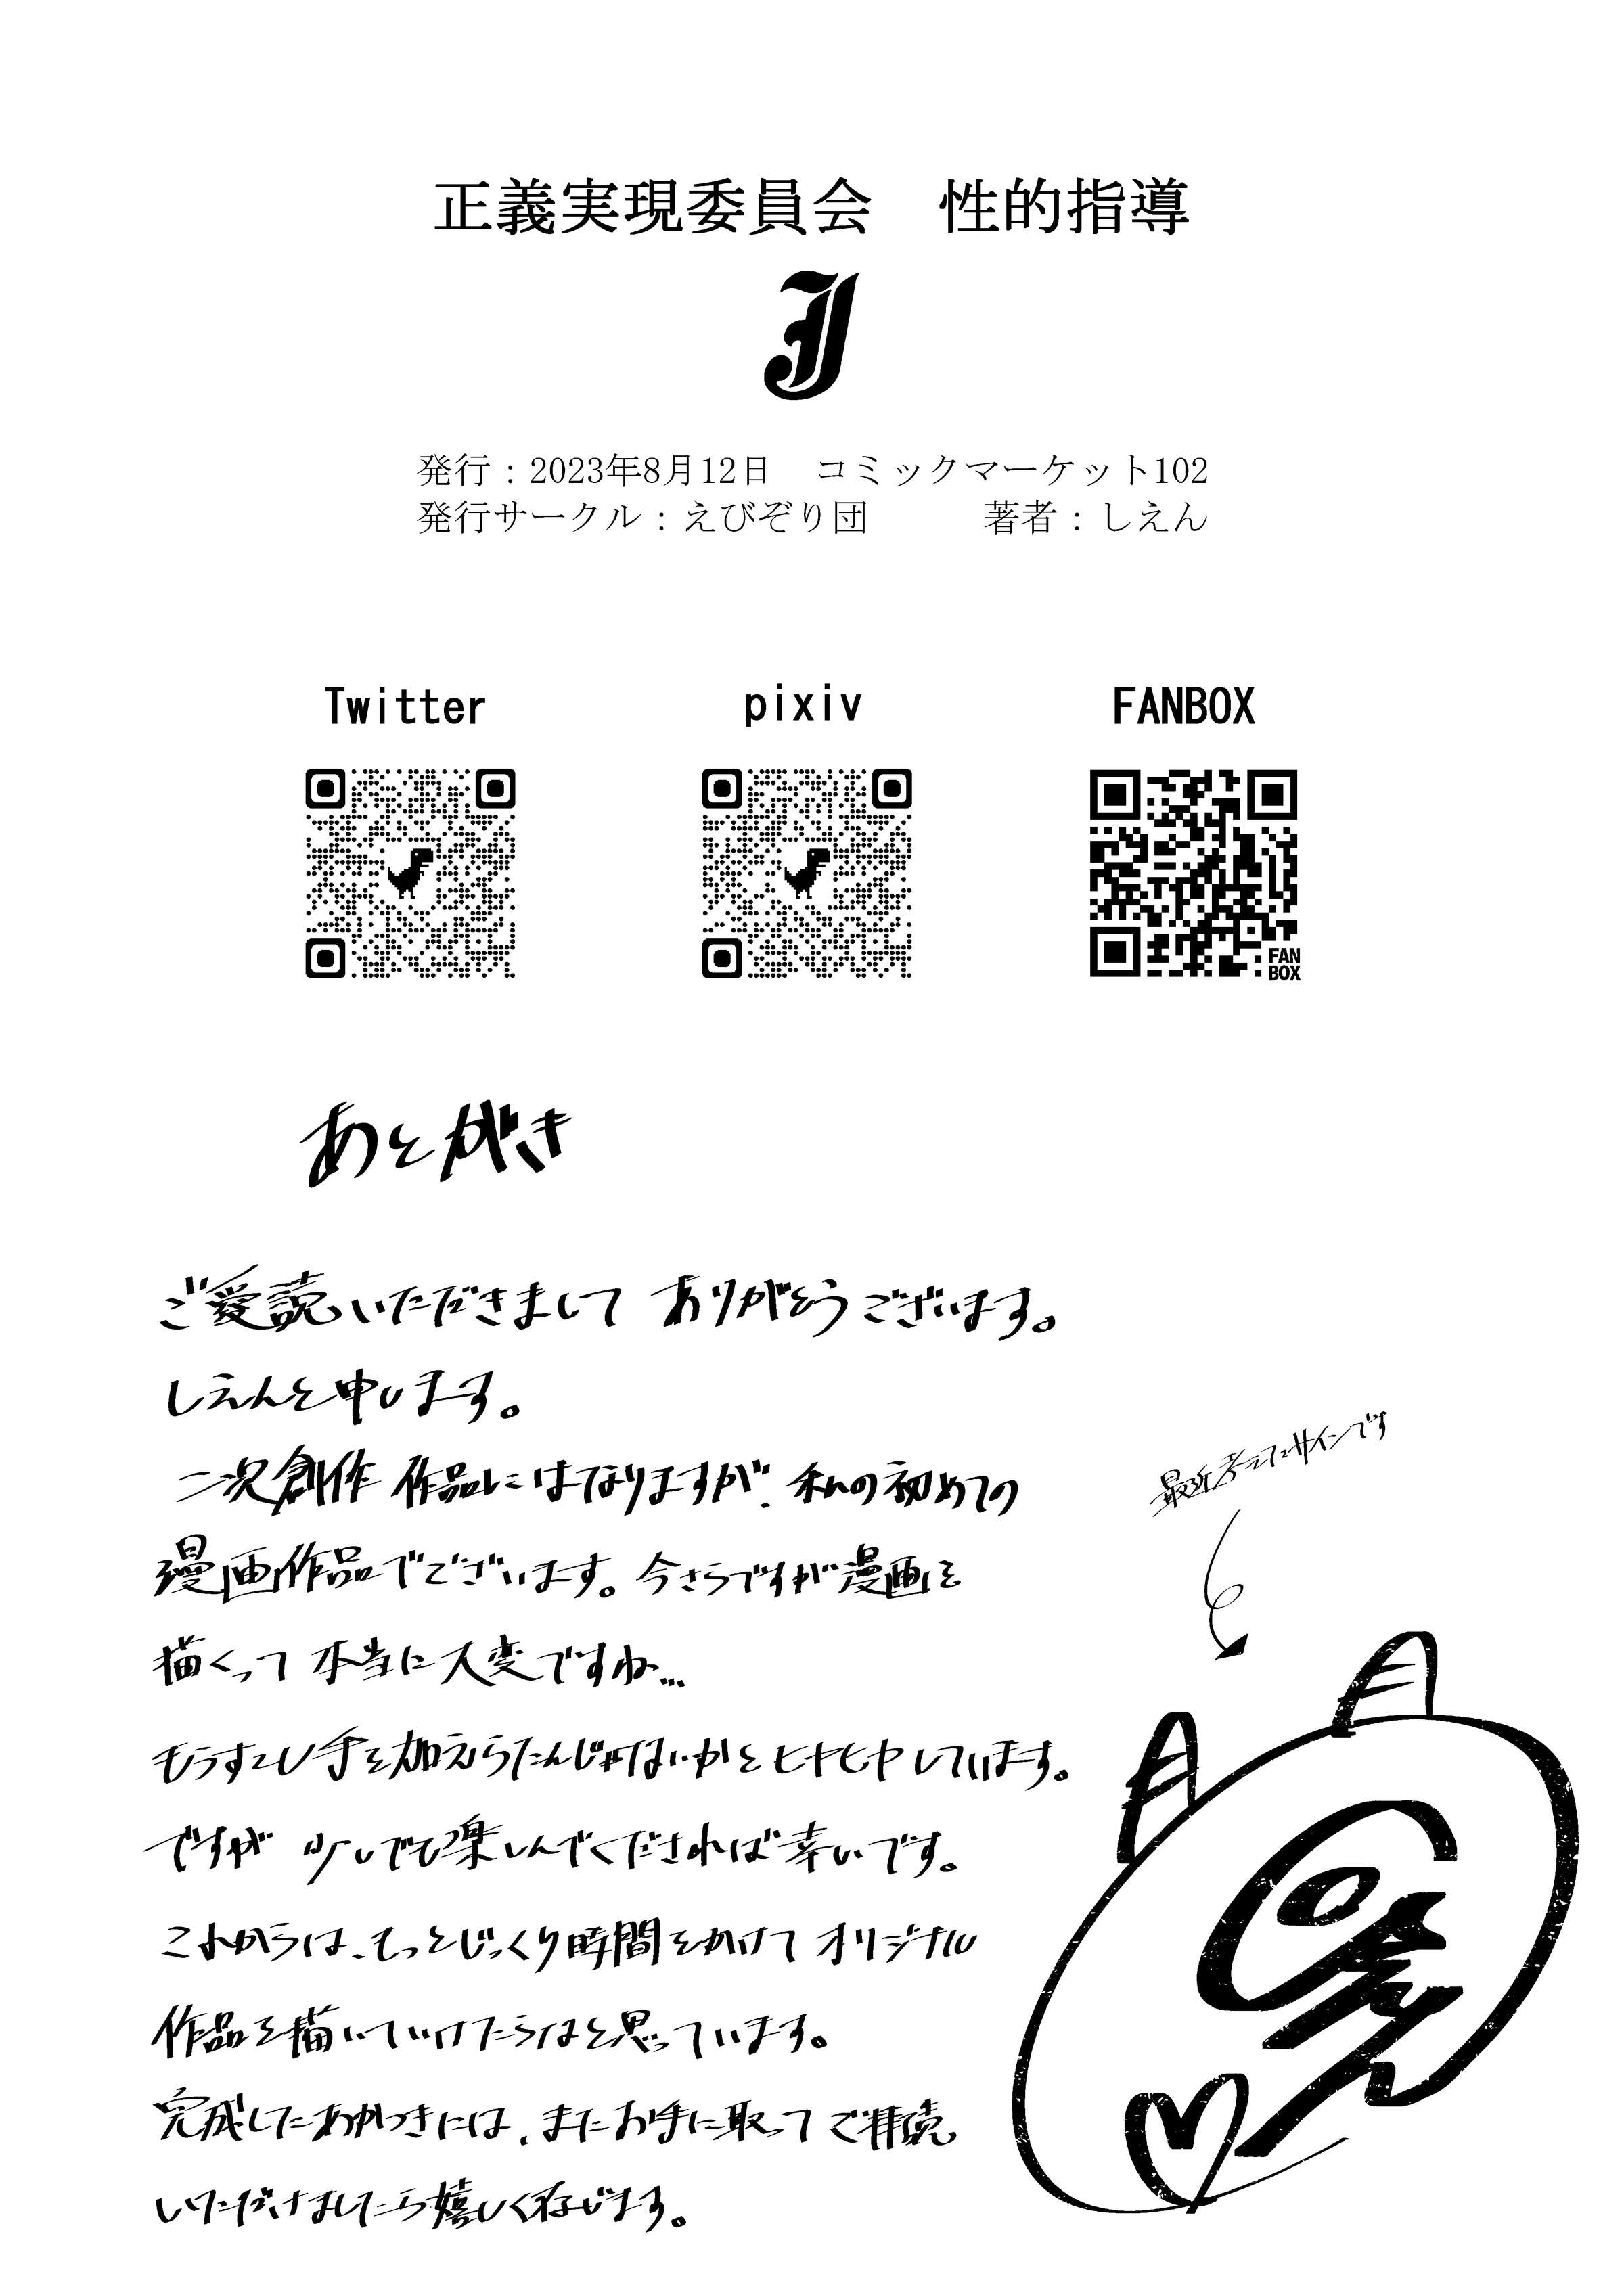 正義実現委員会　性的指導
J
発行：2023年8月12日　コミックマーケット102
発行サークル：えびぞり団　著者：しえん
Twitter
pixiv
FANBOX
FAN
BOX
あとがき
ご愛読いただきまして ありがとうございます。
しえんと申します。
二次創作 作品にはなりますが、私の初めての
漫画作品でございます。今さらですが漫画を
描くって 本当に大変ですね…
もうすこし手を加えらたんじゃないかとヒヤヒヤしています。
ですが 少しでも楽しんでくだされば幸いです。
これからは、もっとじっくり時間をかけて オリジナル
作品を描いていけたらなと思っています。
完成したあかつきには、またお手に取って ご拝読
いただけましたら嬉しく存じます。
最近考えてるサインです